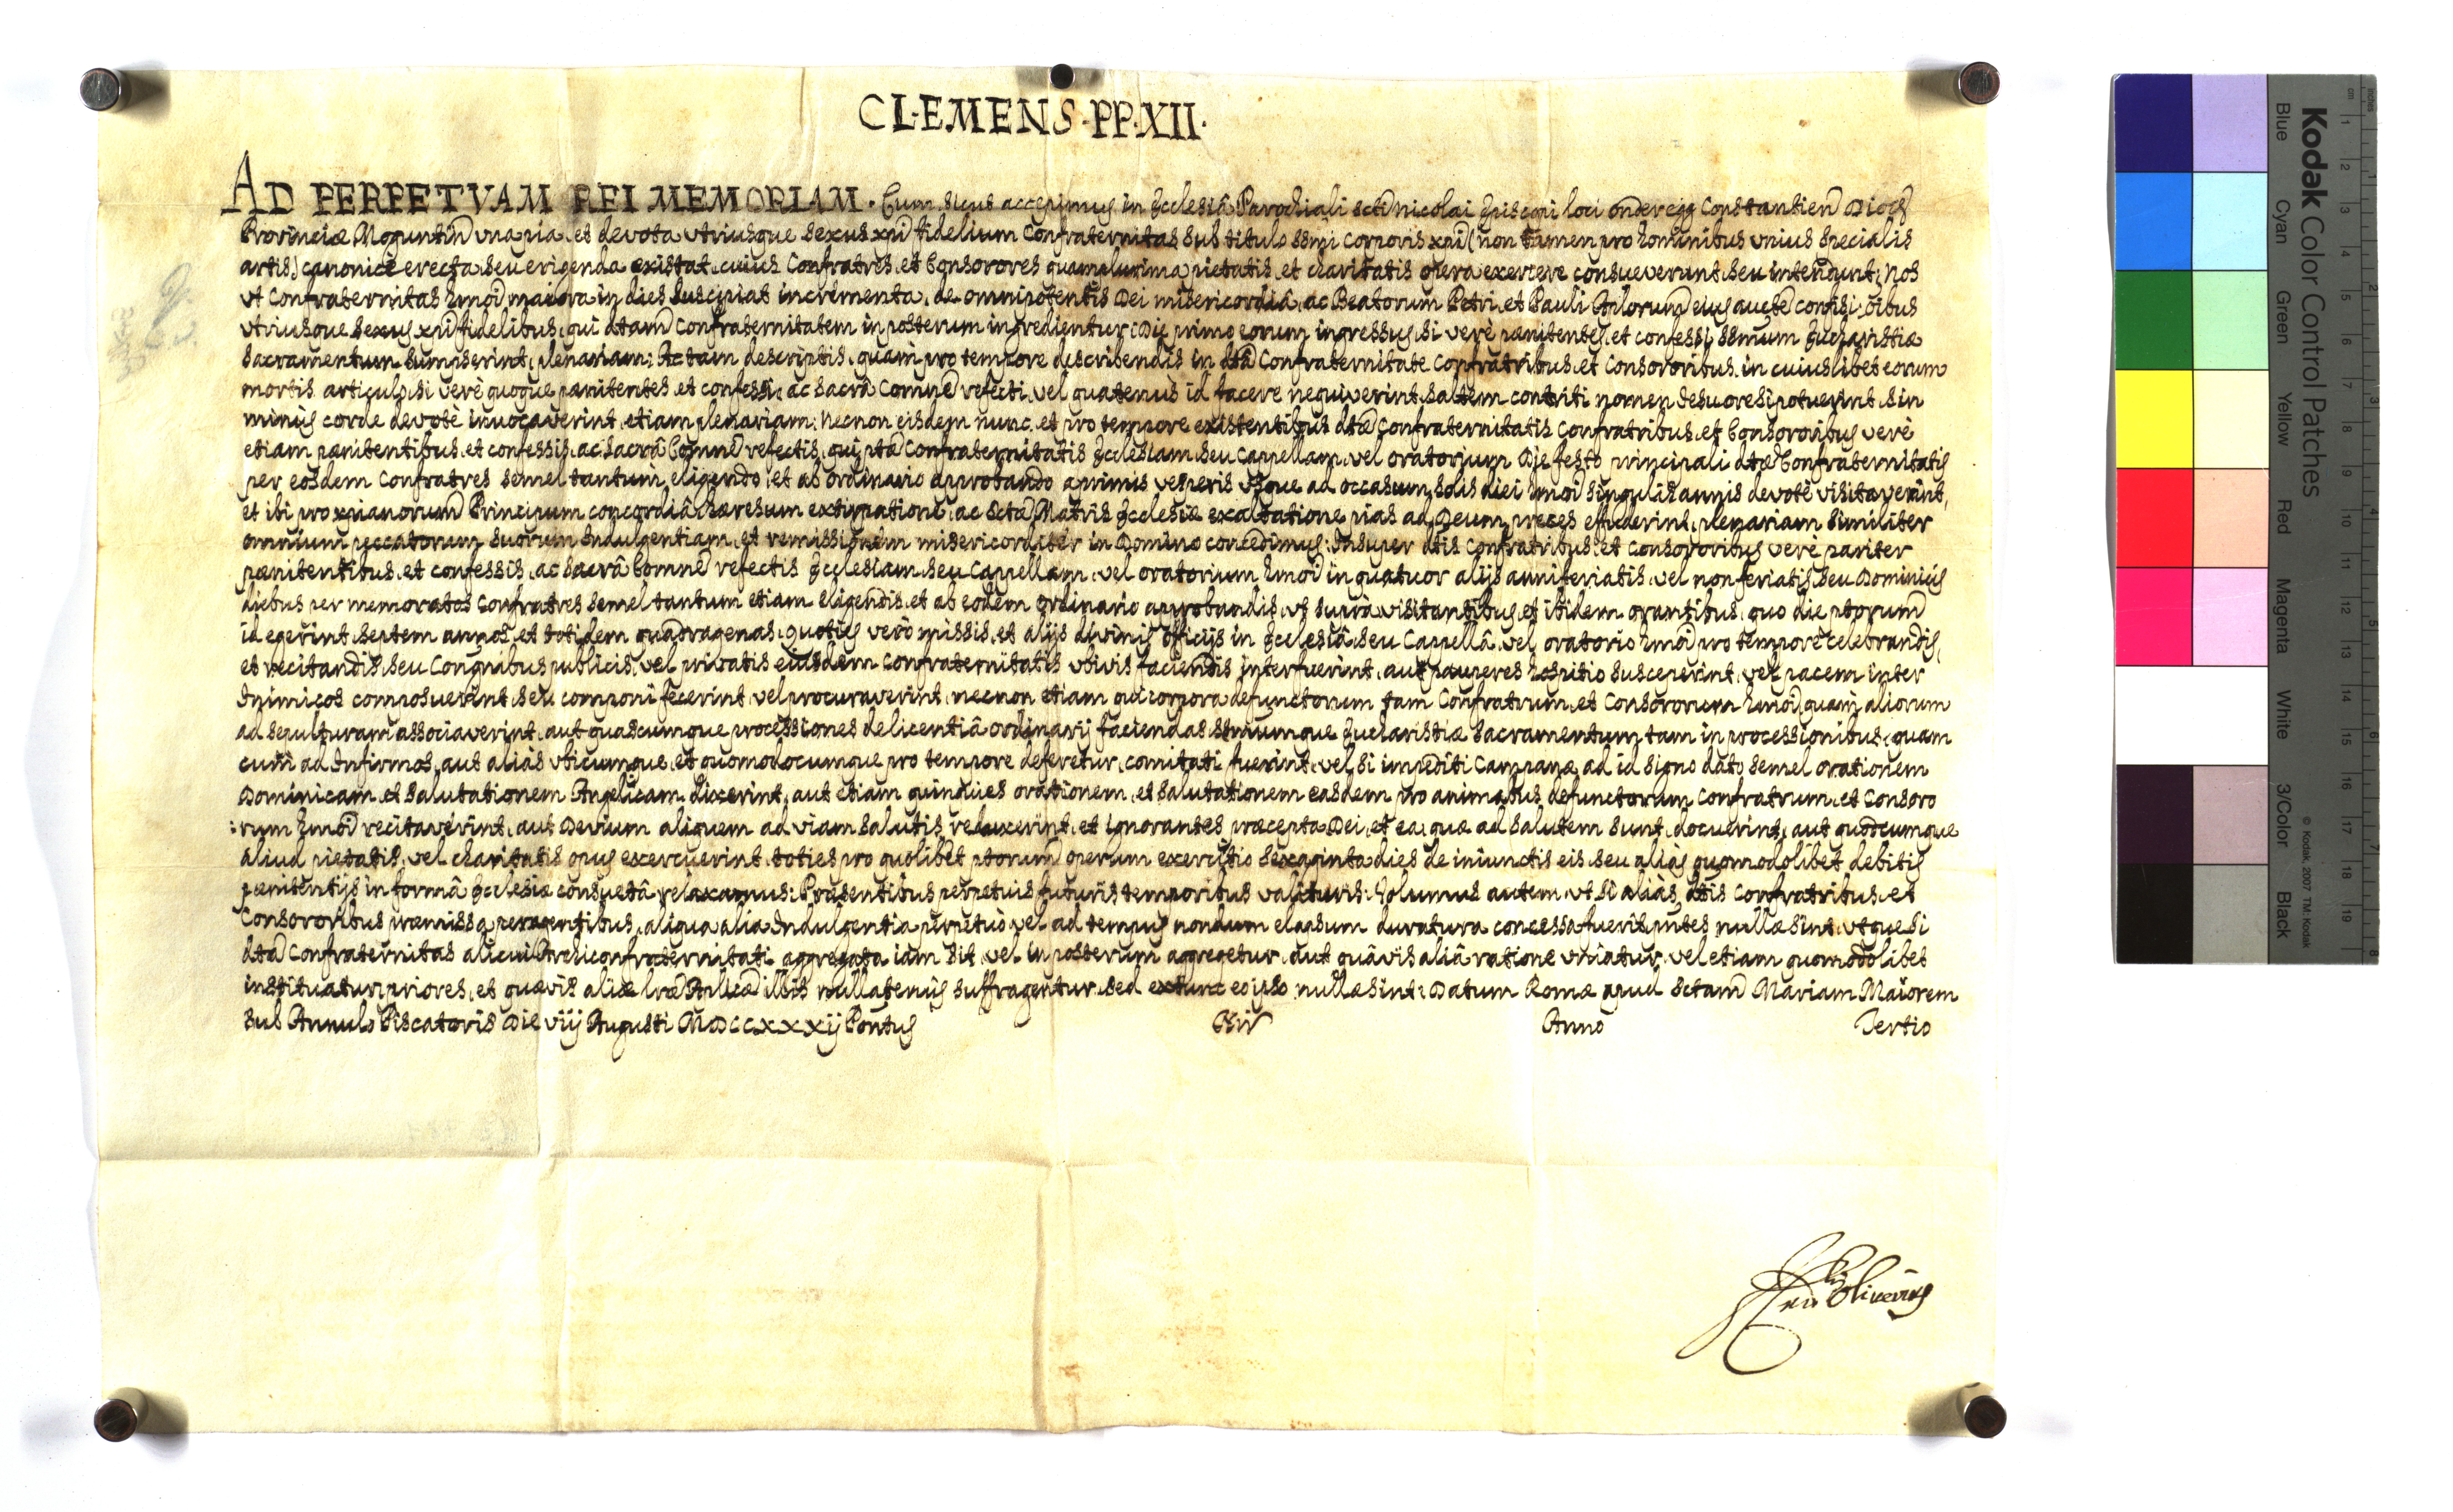 CLEMENS PP. XII.
AD PERPETVAM REI MEMORIAM. Cum sicut accepimus in Ecclesiâ Parochiali Scti Nicolai Episcopi loci onderegg Constantien Dioc
Provinciæ Moguntin vna pia, et devota vtriusque sexus xpi fidelium Confraternitas sub titulo ssmi Corporis xpi (non tamen pro hominibus vnius specialis
artis) canonicè erecta, seu erigenda existat, cuius Confratres, et Consorores quamplurima pietatis, et charitatis opera exercere consueverunt, seu intendunt; Nos
vt Confraternitas hmoi maiora in dies suscipiat incrementa, de omnipotentis Dei misericordiâ, ac Beatorum Petri, et Pauli Aplorum eius aucte confisi, oibus
vtriusque sexus xpi fidelibus, qui dtam Confraternitatem in posterum ingredientur, Die primo eorum ingressus, si verè pænitentes, et confessi ssmum Eucharistiæ
Sacramentum sumpserint, plenariam: Ac tam descriptis, quam pro tempore describendis in dta Confraternitate Confratribus, et Consororibus, in cuiuslibet eorum
mortis articulo, si verè quoque pænitentes, et confessi, ac sacrâ Comne refecti, vel quatenus id facere nequiverint, saltem contriti nomen Jesu ore si potuerint, sin
minus corde devotè invocaverint, etiam plenariam: Necnon eisdem nunc, et pro tempore existentibus dtæ Confraternitatis Confratribus, et Consororibus verè
etiam pænitentibus, et confessis, ac sacrâ Comne refectis, qui ptæ Confraternitatis Ecclesiam, seu Cappellam, vel oratorium Die festo principali dtæ Confraternitatis
per eosdem Confratres semel tantum eligendo, et ab ordinario approbando a primis vesperis vsque ad occasum solis diei hmoi singulis annis devotè visitaverint,
et ibi pro xpianorum Principum concordiâ, hæresum extirpatione, ac sctæ Matris Ecclesiæ exaltatione pias ad Deum preces effuderint, plenariam similiter
omnium peccatorum suorum Indulgentiam, et remissionem misericorditer in Domino concedimus: Insuper dtis Confratribus, et Consororibus verè pariter
pænitentibus, et confessis, ac sacrâ Comne refectis Ecclesiam, seu Cappellam, vel oratorium hmoi in quatuor alijs anni feriatis, vel non feriatis, seu Dominicis
diebus per memoratos Confratres semel tantum etiam eligendis, et ab eodem ordinario approbandis, vt suprà visitantibus, et ibidem orantibus, quo die ptorum
id egerint, septem annos, et totidem quadragenas; quoties verò missis, et alijs divinis officijs in Ecclesiâ, seu Cappellâ, vel oratorio hmoi pro tempore celebrandis,
et recitandis, seu Congnibus publicis, vel privatis eiusdem Confraternitatis vbivis faciendis interfuerint, aut pauperes hospitio susceperint, vel pacem inter
Inimicos composuerint, seu componi fecerint, vel procuraverint, necnon etiam qui corpora defunctorum tam Confratrum, et Consororum hmoi, quam aliorum
ad sepulturam associaverint, aut quascumque processiones de licentiâ ordinarij faciendas, ssmumque Eucharistiæ Sacramentum, tam in processionibus, quam
cum ad Infirmos, aut aliàs vbicumque, et quomodocumque pro tempore deferetur, comitati fuerint, vel si impediti Campanæ ad id signo dato semel orationem
Dominicam, et salutationem Angelicam dixerint, aut etiam quinquies orationem, et salutationem easdem pro animabus defunctorum Confratrum, et Consoro
:rum hmoi recitaverint, aut Devium aliquem ad viam salutis reduxerint, et ignorantes præcepta Dei, et ea, quæ ad salutem sunt, docuerint, aut quodcumque
aliud pietatis, vel charitatis opus exercuerint, toties pro quolibet ptorum operum exercitio sexaginta dies de iniunctis eis, seu aliàs quomodolibet debitis
pænitentijs in formâ Ecclesiæ consuetâ relaxamus: Præsentibus perpetuis futuris temporibus valituris: Volumus autem, vt si aliàs dtis Confratribus, et
Consororibus præmissa peragentibus, aliqua alia Indulgentia perpetuò, vel ad tempus nondum elapsum duratura concessa fuerit, pntes nullæ sint, vtque si
dta Confraternitas alicui Archiconfraternitati aggregata iam sit, vel in posterum aggregetur, aut quâvis aliâ ratione vniatur, vel etiam quomodolibet
instituatur, priores, et quævis aliæ lræ Aplicæ illis nullatenus suffragentur, sed ex tunc eo ipso nullæ sint: Datum Romæ apud Sctam Mariam Maiorem
sub Annulo Piscatoris Die viij Augusti MDCCXXXij Pontus Nri Anno Tertio
Oliverius
Kodak Color Control Patches
Blue Cyan Green Yellow Red Magenta White 3/Color Black
© Kodak, 2007 TM: Kodak
inches 1 2 3 4 5 6 7 8
cm 1 2 3 4 5 6 7 8 9 10 11 12 13 14 15 16 17 18 19